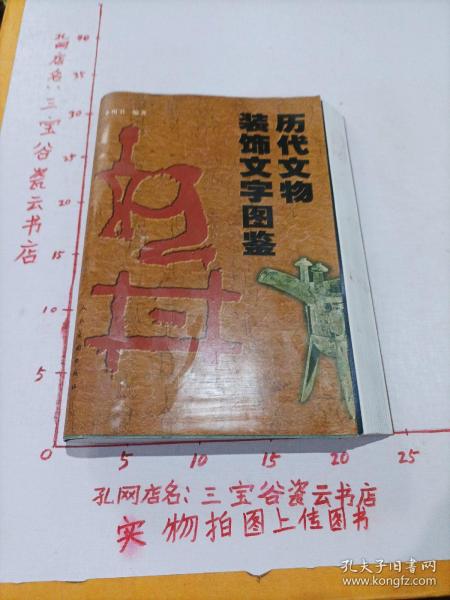 孔网店名:三宝谷瓷云书店
40
35
30
25
20
15
10
5
0
5
10
15
20
25
编著
历代文物
装饰文字图鉴
孔网店名:三宝谷瓷云书店
实物拍图上传图书
孔夫子旧书网
www.kongfz.com